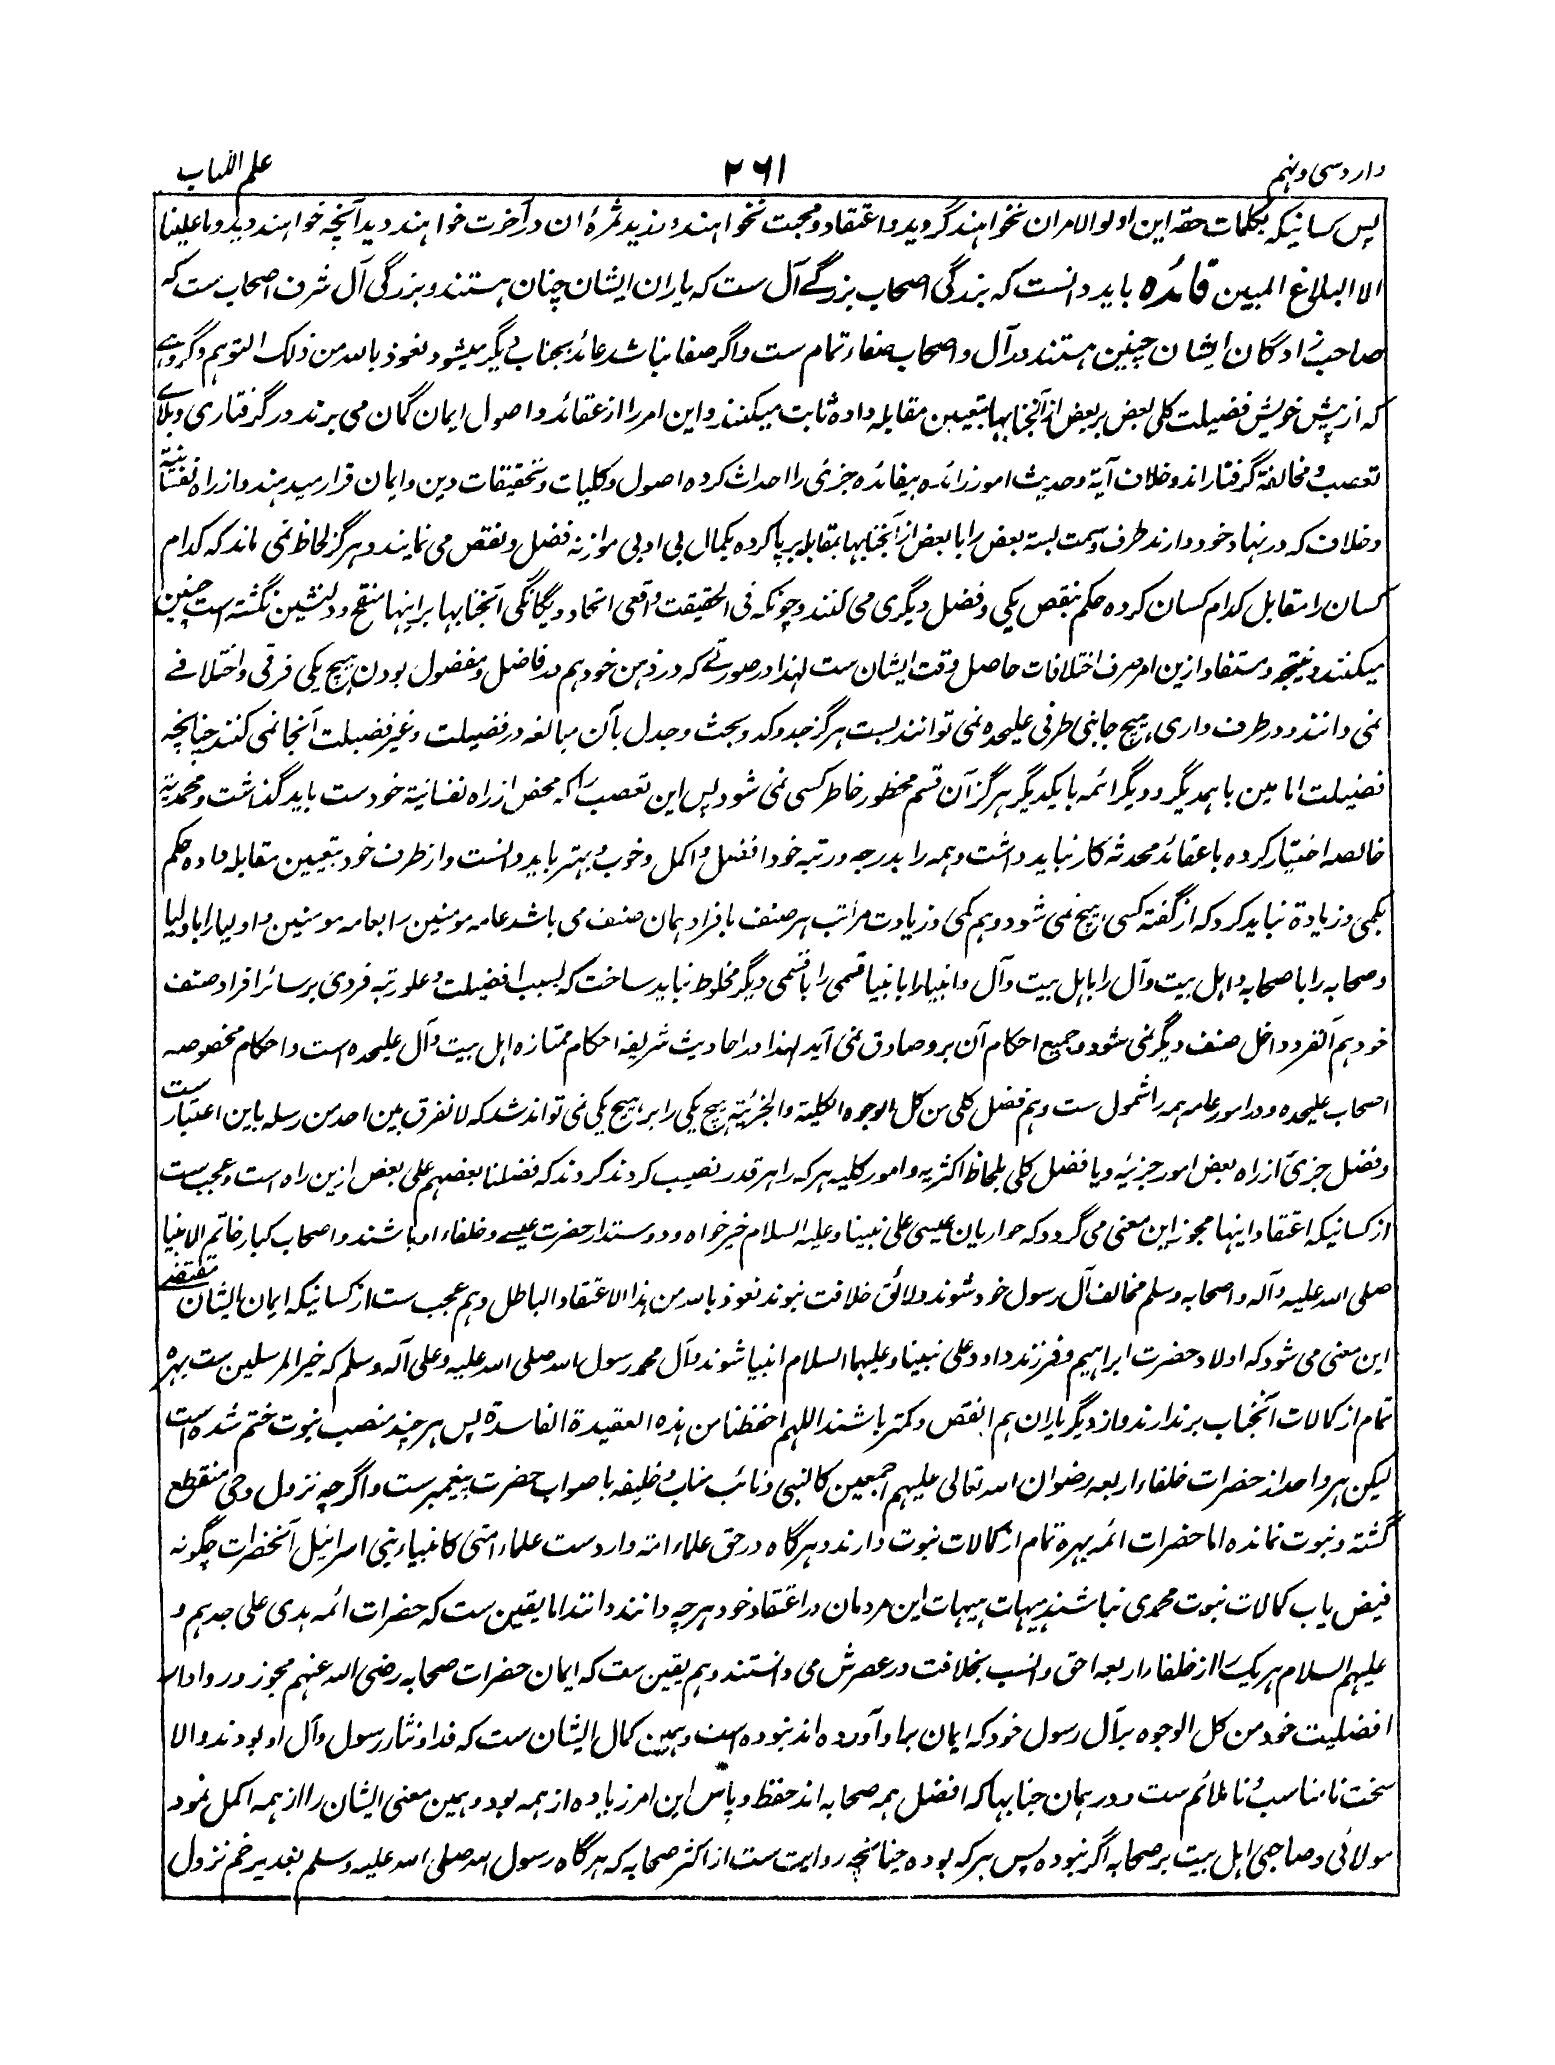 وارد سی و نهم ۲۶۱ علم الکتاب
پس کسانیکه بکلمات حقه این اولوالامران نخواهند گروید و اعتقاد و محبت نخواهند ورزید ثمرهٔ آن در آخرت خواهند دید آنچه خواهند دید و ما علینا
الا البلاغ المبین فائده باید دانست که بزرگی اصحاب بزرگی آل ست که یاران ایشان چنان هستند و بزرگی آل شرف اصحاب ست که
صاحبزادگان ایشان چنین هستند در آل و اصحاب صفاء تمام ست و اگر صفا نباشد عائد بجناب دیگر میشود نعوذ بالله من ذلک التوهم و گروهے
که از پیش خویش فضیلت کلی بعض بر بعض از آنجنابها بتعیین مقابله داده ثابت میکنند و این امر را از عقائد و اصول ایمان گمان می برند در گرفتاری وبلائے
تعصب و مخالفة گرفتار اند و خلاف آیة و حدیث امور زائده بیفائده جزئی را احداث کرده اصول و کلیات و تحقیقات دین و ایمان قرار میدهند و از راه نفسانیة
و خلاف که در نهاد خود دارند طرف و سمت بسته بعض را با بعض از آنجنابها بمقابله برپا کرده بکمال بی ادبی موازنه فضل و نقص می نمایند و هرگز لحاظ نمی ماند که کدام
کسان را مقابل کدام کسان کرده حکم بنقص یکی و فضل دیگری می کنند و چونکه فی الحقیقت واقعی اتحاد و یگانگی آنجنابها بر اینها منقح و دلنشین نگشته است چنین
میکنند و نتیجه مستفاد ازین امر صرف اختلافات حاصل وقت ایشان ست لهذا در صورتے که در ذهن خود هم در فاضل و مفضول بودن هیچ یکی فرقی و اختلافے
نمی دانند و در طرف داری هیچ جانبی طرفی علیحده نمی توانند بست هرگز جد و کد و بحث و جدل بآن مبالغه در فضیلت و غیر فضیلت آنجا نمی کنند چنانچه
فضیلت امامین با همدیگر و دیگر ائمه با یکدیگر هرگز آن قسم محظور خاطر کسی نمی شود پس این تعصب را که محض از راه نفسانیة خودست باید گذاشت و محمدیة
خالصه اختیار کرده با عقائد محدثه کار نباید داشت و همه را بدرجه و رتبه خود افضل و اکمل و خوب و بهتر باید دانست و از طرف خود بتعیین مقابله داده حکم
بکمی و زیادة نباید کرد که از گفته کسی هیچ نمی شود و هم کمی و زیادت مراتب هر صنف با فراد همان صنف می باشد عامه مومنین را بعامه مومنین و اولیا را باولیا
و صحابه را با صحابه و اهل بیت و آل را باهل بیت و آل و انبیا را بانبیا قسمی را با قسمی دیگر مخلوط نباید ساخت که بسبب افضیلت و علو رتبه فردی بر سائر افراد صنف
خود هم آنفرد داخل صنف دیگر نمی شود و جمیع احکام آن برو صادق نمی آید لهذا در احادیث شریفه احکام ممتازه اهل بیت و آل علیحده است و احکام مخصوصه
اصحاب علیحده و در امور عامه همه را شمول ست و هم فضل کلی من کل الوجوه الکلیة والجزئیة هیچ یکی را بر هیچ یکی نمی تواند شد که لا نفرق بین احد من رسله باین اعتبار ست
و فضل جزئی از راه بعض امور جزئیه و یا فضل کلی بلحاظ اکثریه و امور کلیه هر که را هر قدر نصیب کردند کردند که فضلنا بعضهم علی بعض ازین راه است و عجب ست
از کسانیکه اعتقاد اینها مجوز این معنی می گردد که حواریان عیسی علی نبینا و علیه السلام خیرخواه و دوستدار حضرت عیسے و خلفاء او باشند و اصحاب کبار خاتم الانبیا
صلی الله علیه و آله و اصحابه و سلم مخالف آل رسول خود شوند و لائق خلافت نبوند نعوذ بالله من هذا الاعتقاد الباطل و هم عجب ست از کسانیکه ایمان ایشان مقتضے
این معنی می شود که اولاد حضرت ابراهیم و فرزند داود علی نبینا و علیهما السلام انبیا شوند و آل محمد رسول الله صلی الله علیه و علی آله و سلم که خیر المرسلین ست بهره
تمام از کمالات آنجناب برندارند و از دیگر یاران هم انقص و کمتر باشند اللهم احفظنا من هذه العقیدة الفاسدة پس هر چند منصب نبوت ختم شده است
لیکن هر واحد از حضرات خلفاء اربعه رضوان الله تعالی علیهم اجمعین کالنبی و نائب مناب و خلیفه با صواب حضرت پیغمبرست و اگرچه نزول وحی منقطع
گشته و نبوت نمانده اما حضرات ائمه بهره تمام از کمالات نبوت دارند و هرگاه در حق علماء امته واردست علماء امتی کانبیاء بنی اسرائیل آنحضرات چگونه
فیض یاب کمالات نبوت محمدی نباشند هیهات هیهات این مردمان در اعتقاد خود هرچه دانند دانند اما یقین ست که حضرات ائمه هدی علی جدهم و
علیهم السلام هریک را از خلفاء اربعه احق و انسب بخلافت در عصرش می دانستند و هم یقین ست که ایمان حضرات صحابه رضی الله عنهم مجوز و روادار
افضلیت خود من کل الوجوه بر آل رسول خود که ایمان براو آورده اند نبوده است و همین کمال ایشان ست که فدا و نثار رسول و آل او بودند و الا
سخت نامناسب و ناملائم ست و در همان جنابها که افضل همه صحابه اند حفظ و پاس این امر زیاده از همه بود و همین معنی ایشان را از همه اکمل نمود
مولائی و صاحبی اهل بیت بر صحابه اگر نبوده پس بر که بوده چنانچه روایت ست از اکثر صحابه که هرگاه رسول الله صلی الله علیه و سلم بغدیر خم نزول